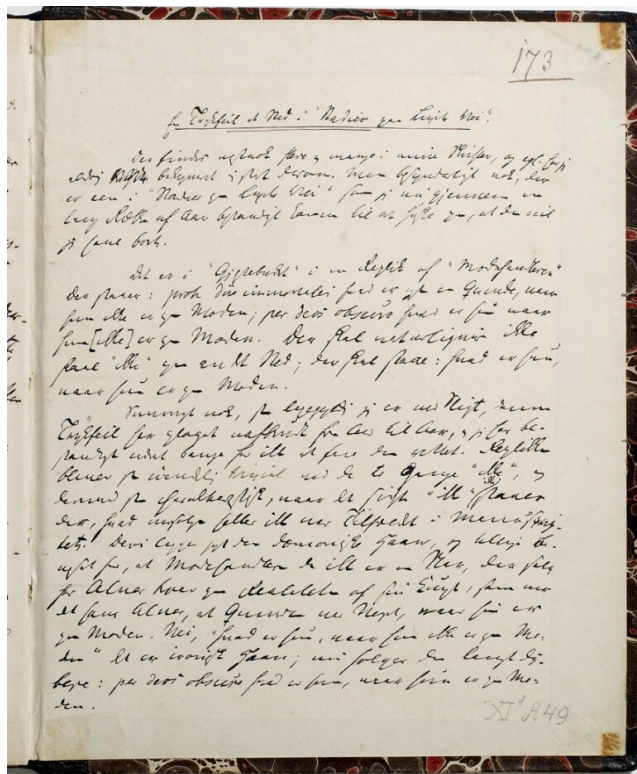 173
En Trykfeil et Sted i "Stadier paa Livets Vei".
Der findes nok flere og mange i mine Skrifter, og jeg
aldrig bekymret i den derom. Men besynderligt nok, der
er een i "Stadier paa Livets Vei" som jeg nu gjennem en
lang Række af Aar bestandigt kommer til at huske paa, at den vil
jeg have bort.
Det er i "Gjæstebudet" i en Replik af "Modehandleren"
Der staaer: proh dii immortales hvad er dog en Qvinde, naar
hun ikke er paa Moden; per deos obscuros hvad er hun naar
hun [ikke] er paa Moden. Der skal naturligviis ikke
staae "ikke" paa andet Sted; der skal staae: hvad er hun,
naar hun er paa Moden.
nok, saa jeg er ved Sligt, denne
Trykfeil har plaget fra Aar til Aar, og jeg har be-
standigt været bange for ikke at faae den rettet. Repliken
bliver saa med de to Gange "ikke", og
derimod saa naar det første "ikke" staaer
der, hvad ogsaa heller ikke var Tilfældet i Manuscrip-
tet. Deri ligger just den dæmoniske Haan, og tillige
for, at Modehandleren da ikke er en Nar, der selv
for Alvor troer paa Realiteten af sin Kunst, som var
det hans Alvor, at Qvinden var Noget, naar hun er
paa Moden. Nei, "hvad er hun, naar hun ikke er paa Mo-
den" det er ironisk Haan; nu følger den langt dy-
bere: per deos obscuros hvad er hun, naar hun er paa Mo-
den.
XI¹ A 49